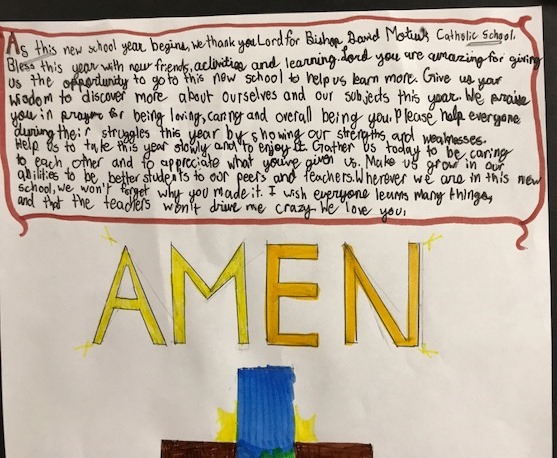 As this new school year begins, we thank you Lord for Bishop David Motiuk Catholic School.
Bless this year with new friends, activities and learning. Lord you are amazing for giving
us the opportunity to go to this new school to help us learn more. Give us your
wisdom to discover more about ourselves and our subjects this year. We praise
you in prayer for being loving, caring and overall being you. Please help everyone
during their struggles this year by showing our strengths and weaknesses.
Help us to take this year slowly and to enjoy it. Gather us today to be caring
to each other and to appreciate what you've given us. Make us grow in our
abilities to be better students to our peers and teachers. Wherever we are in this new
school, we won't forget why you made it. I wish everyone learns many things,
and that the teachers won't drive me crazy. We love you,
AMEN